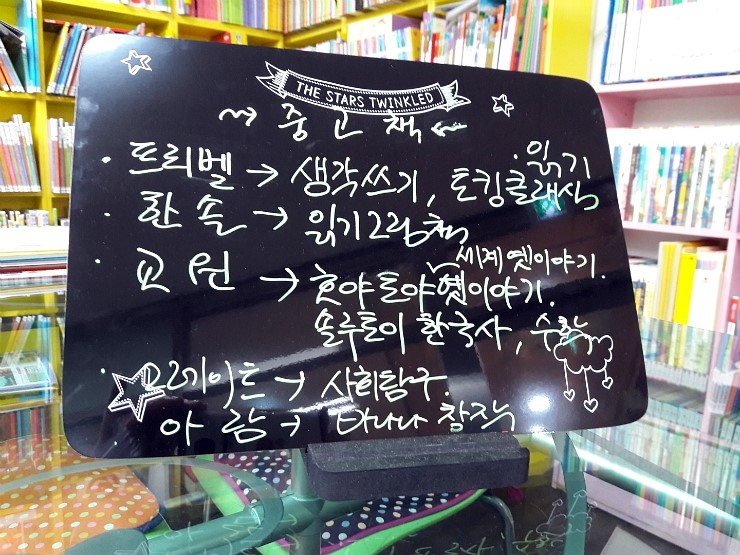 THE STARS TWINKLED
중고책
· 프리벨 → 생각쓰기, 토킹클래식 · 읽기
· 한솔 → 읽기그림책
· 교원 → 호야토야옛이야기. 세계옛이야기.
솔루토이 한국사, 수학
· 그레이트 → 사회탐구.
아람 → 바나나 창작